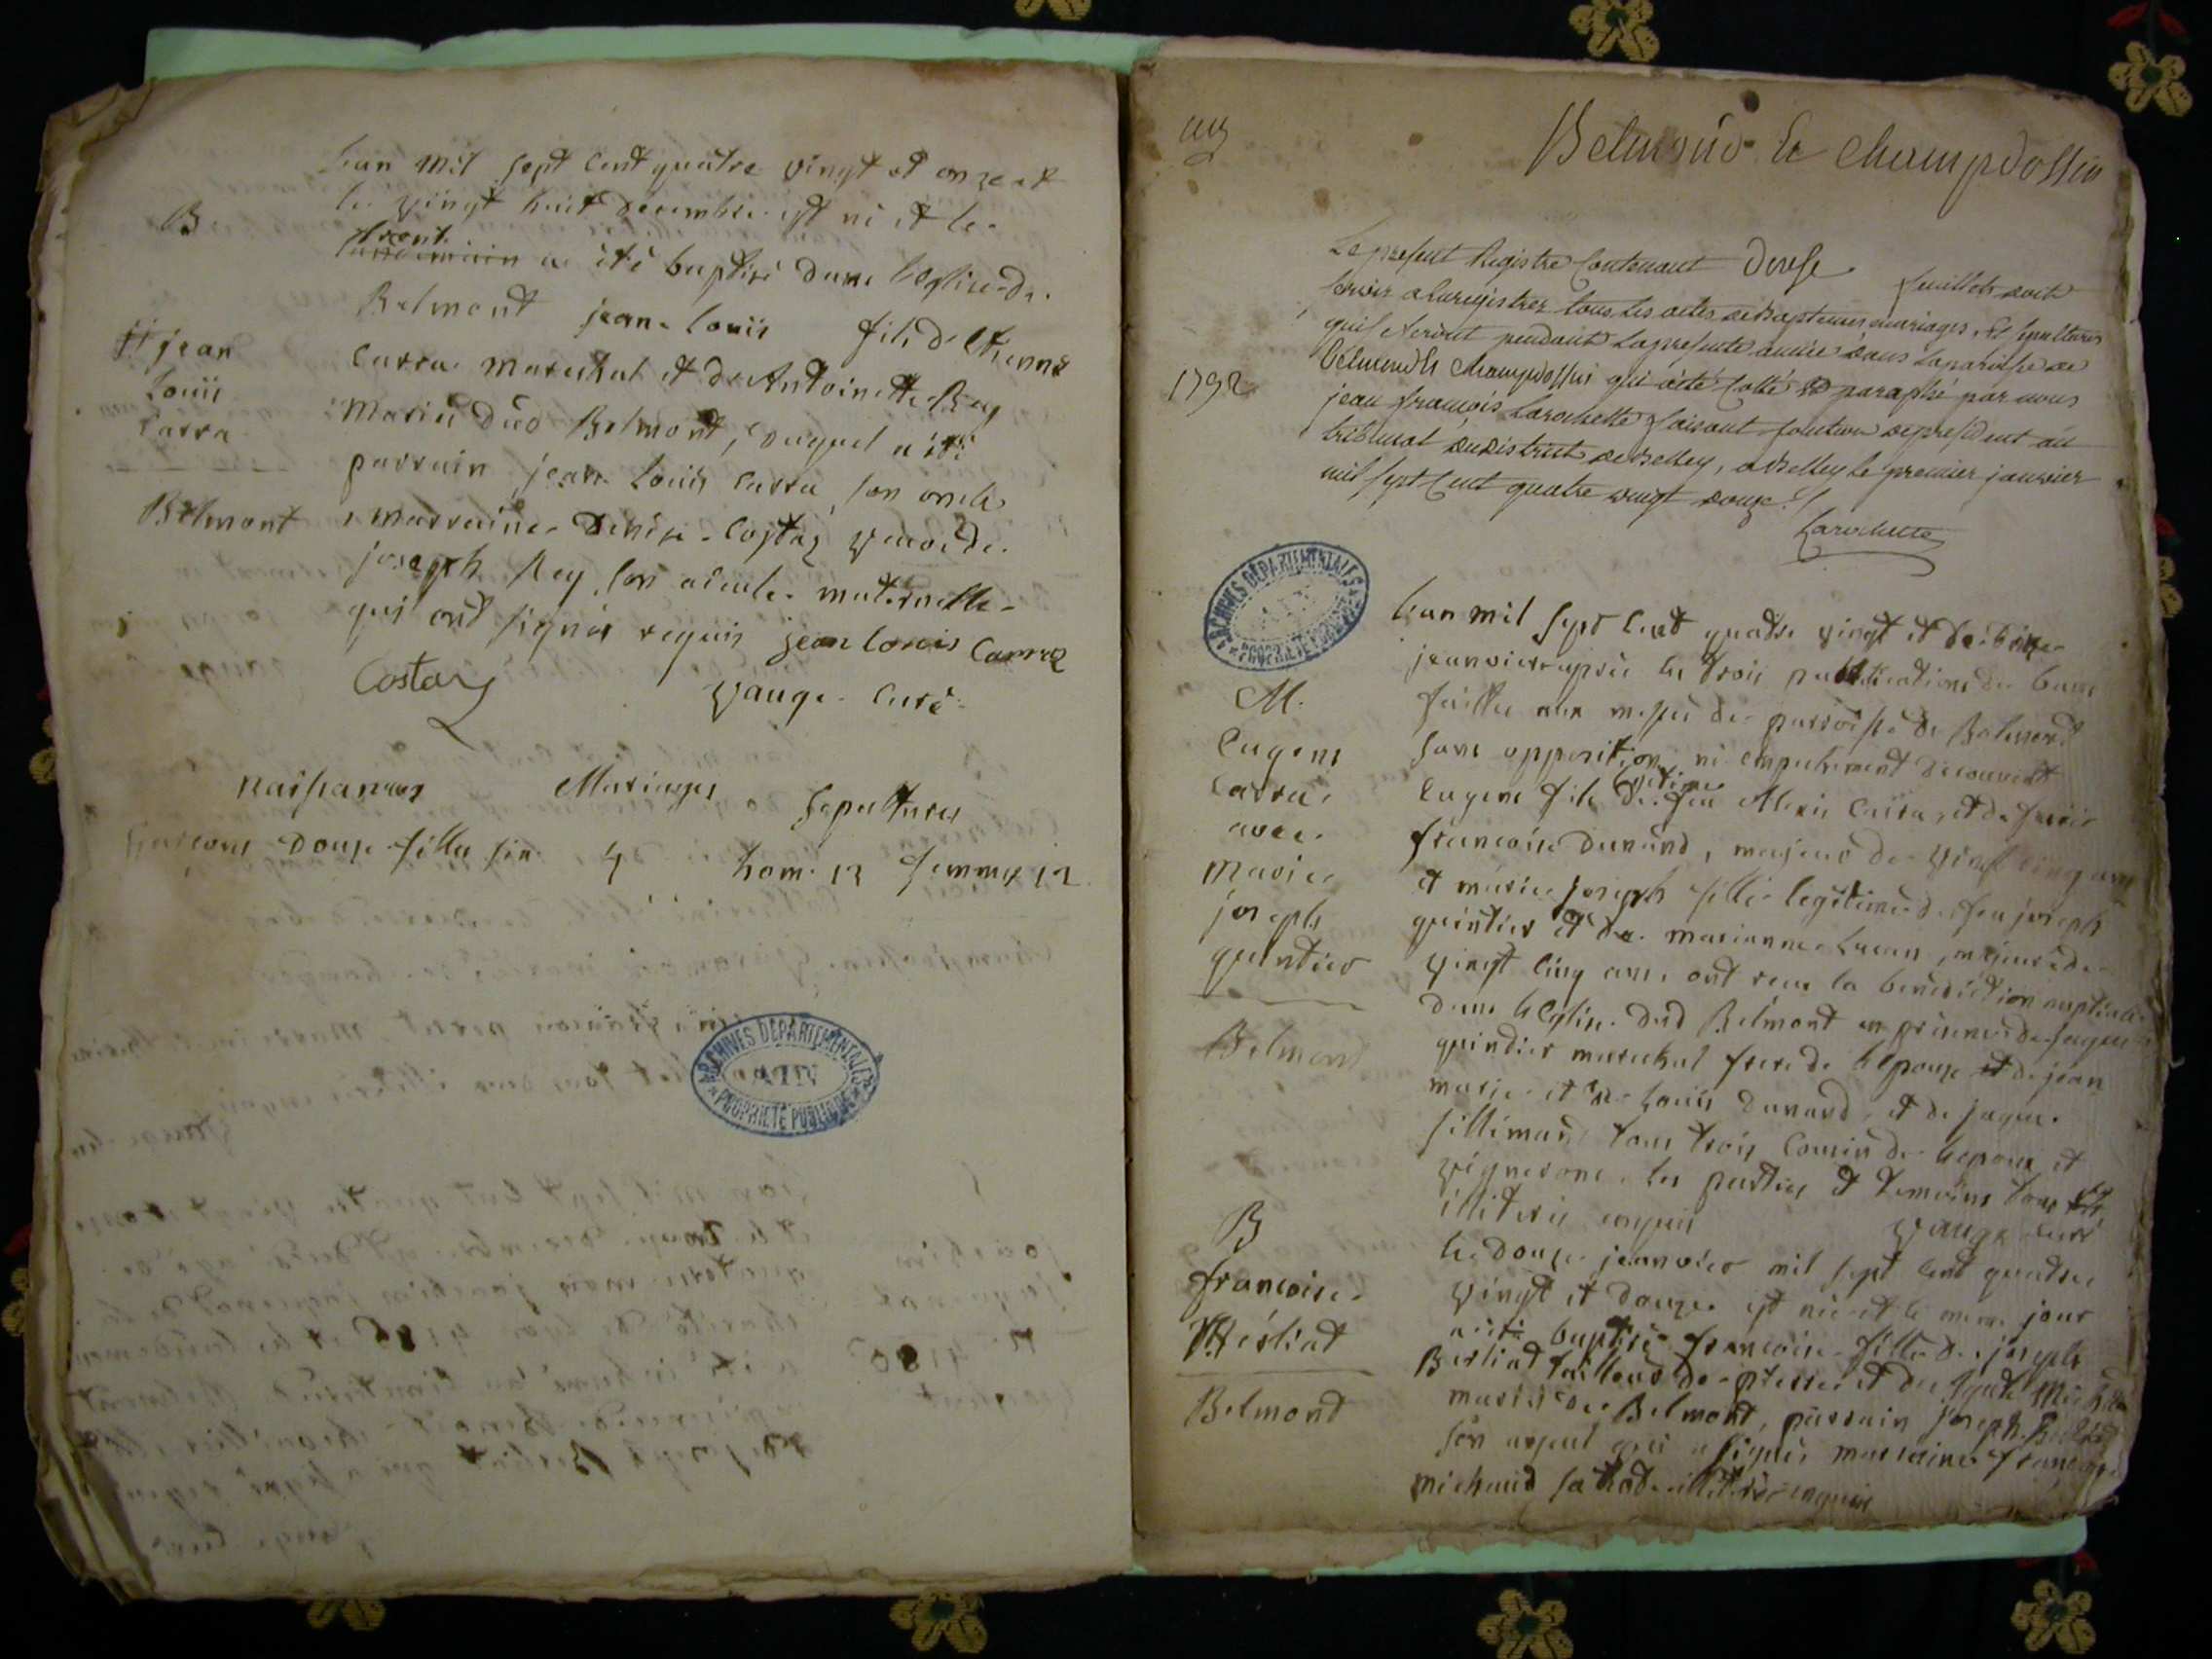 B.
jean
Louis
Carra
Belmont
L'an mil sept cent quatre vingt et onze et
le vingt huit decembre est né et le
trente
a été baptisé dans l'Eglise de
Belmont jean Louis fils d'Etienne
Carra marechal et de Antoinette Rey
mariés dud Belmont, duquel a été
parrain jean Louis Carra son oncle
marraine Denise Costaz veuve de
joseph Rey son aieule maternelle
qui ont signés requis jean Louis Carraz
Costaz
Vauge Curé
naissances Mariages Sepultures
Garçons Douze filles six 4 hom. 13 femmes 12
ARCHIVES DEPARTEMENTALES
AIN
PROPRIETE PUBLIQUE
Belmond & Champdossin
1792
Le present Registre Contenant Douse feuillets doit
servir a Enregistrer tous les actes de Baptemes, mariages, Et sepultures
qui se feront pendant la presente année dans la paroisse de
Belmond & Champdossin qui a été Cotté & paraphé par nous
jean françois Larochette faisant fonction de president au
tribunal du District de Belley, a Belley le premier janvier
mil sept Cent quatre vingt douze
Larochette
ARCHIVES DEPARTEMENTALES
PROPRIETE PUBLIQUE
M.
Eugene
Carra
avec
Marie
joseph
quintier
Belmont
L'an mil sept Cent quatre vingt et
jeanvier après les trois publications de bans
faittes aux messes de parroisse de Belmont
sans opposition ni empechement decouvert
Eugene fils legitime de feu Alexis Carra, et de
francoise Dunand, majeur de vingt cinq ans
et marie joseph fille legitime de feu joseph
quintier et de marianne Lucan, majeure de
vingt cinq ans ont recu la benediction nuptiale
dans l'Eglise dud Belmont en presence de jaque
quindier marechal frere de l'epouse et de jean
marie et de Louis Dunand et de jaque
sillimand tous trois Cousins de l'epoux et
vignerons. les parties et temoins tous
illiterés enquis Vauge curé
B
francoise
Berliat
Belmond
Le Douze jeanvier mil sept cent quatre
vingt et douze est née et le meme jour
a été baptisée francoise fille de joseph
Berliat tailleur de pierre et de
mariés de Belmont, parrain joseph Berliat
son ayeul qui a signé, marraine francoise
michaud sa illiterée enquise